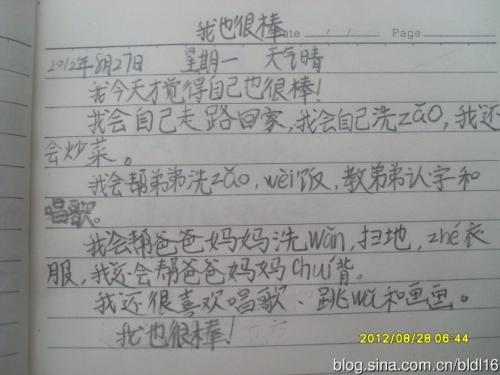 我也很棒
Date / / Page
2012年8月27日 星期一 天气晴
我今天才觉得自己也很棒!
我会自己走路回家,我会自己洗zǎo,我还
会炒菜。
我会帮弟弟洗zǎo,wèi饭,教弟弟认字和
唱歌。
我会帮爸爸妈妈洗wǎn,扫地,zhé衣
服,我还会帮爸爸妈妈chuí背。
我还很喜欢唱歌、跳wǔ和画画。
我也很棒!
2012/08/28 06:44
blog.sina.com.cn/bldl16